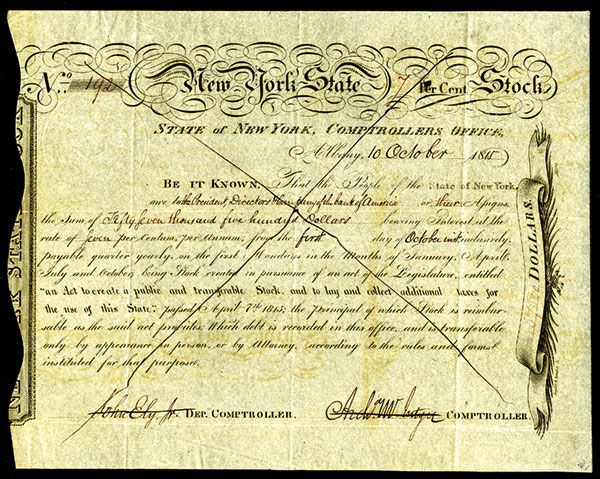 No. 192 New York State 7 Per Cent Stock
STATE of NEW YORK, COMPTROLLERS OFFICE,
Albany, 10 October 1815
BE IT KNOWN, That the People of the State of New York,
owe to the President Directors & Company of the bank of America or their Assigns,
the sum of Fifty Seven thousand five hundred Dollars bearing Interest at the
rate of Seven per Centum, per Annum, from the first day of October inst. inclusively,
payable quarter yearly, on the first Mondays in the Months of January, April,
July and October, being Stock created in pursuance of an act of the Legislature, entitled
"an Act to create a public and transferable Stock, and to lay and collect additional taxes for
the use of this State," passed April 7th 1815; the principal of which Stock is reimbur-
sable as the said act profiles. Which debt is recorded in this office, and is transferable
only by appearance in person, or by Attorney, according to the rules and forms
instituted for that purpose.
John Ely, Jr. DEP. COMPTROLLER. Archd McIntyre COMPTROLLER.
DOLLARS.